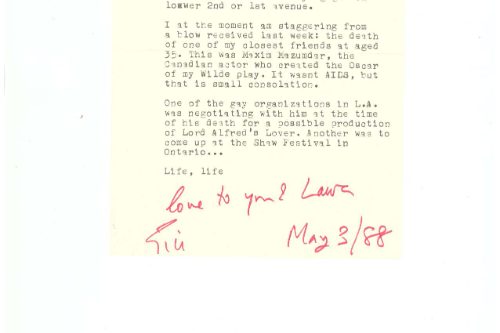 lowwer 2nd or 1st avenue.
I at the moment am staggering from
a blow received last week: the death
of one of my closest friends at aged
35. This was Maxim Mazumdar, the
Canadian actor who created the Oscar
of my Wilde play. It wasnt AIDS, but
that is small consolation.
One of the gay organizations in L.A.
was negotiating with him at the time
of his death for a possible production
of Lord Alfred's Lover. Another was to
come up at the Shaw Festival in
Ontario...
Life, life
love to you &
May 3/88